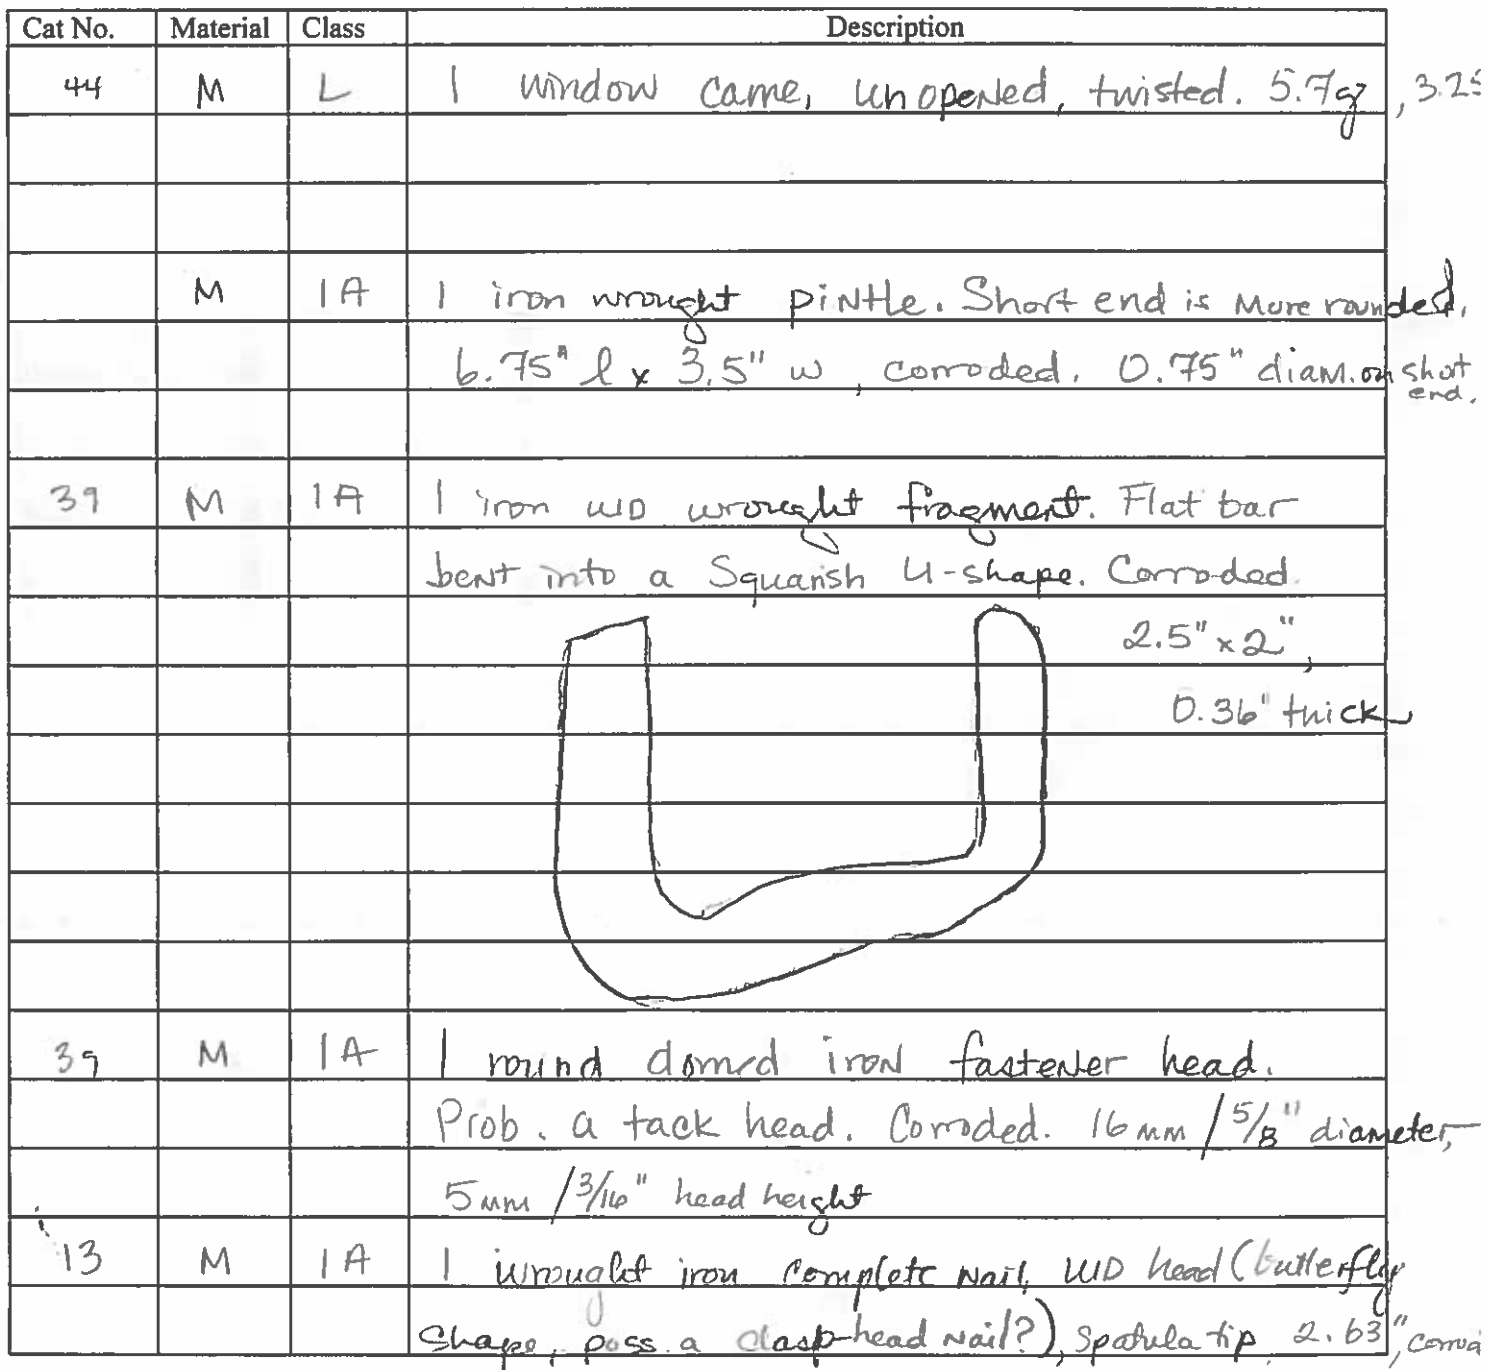 Cat No. Material Class Description
44 M L 1 window came, unopened, twisted. 5.7g, 3.25
M 1A 1 iron wrought pintle. Short end is more rounded.
6.75" l x 3.5" w, corroded. 0.75" diam. on short
end.
39 M 1A 1 iron UID wrought fragment. Flat bar
bent into a Squarish U-shape. Corroded.
2.5" x 2",
0.36" thick
39 M 1A 1 round domed iron fastener head.
Prob. a tack head. Corroded. 16mm / 5/8" diameter,
5mm / 3/16" head height
13 M 1A 1 wrought iron complete nail, UID head (butterfly
shape, poss. a clasp-head nail?), spatula tip 2.63",